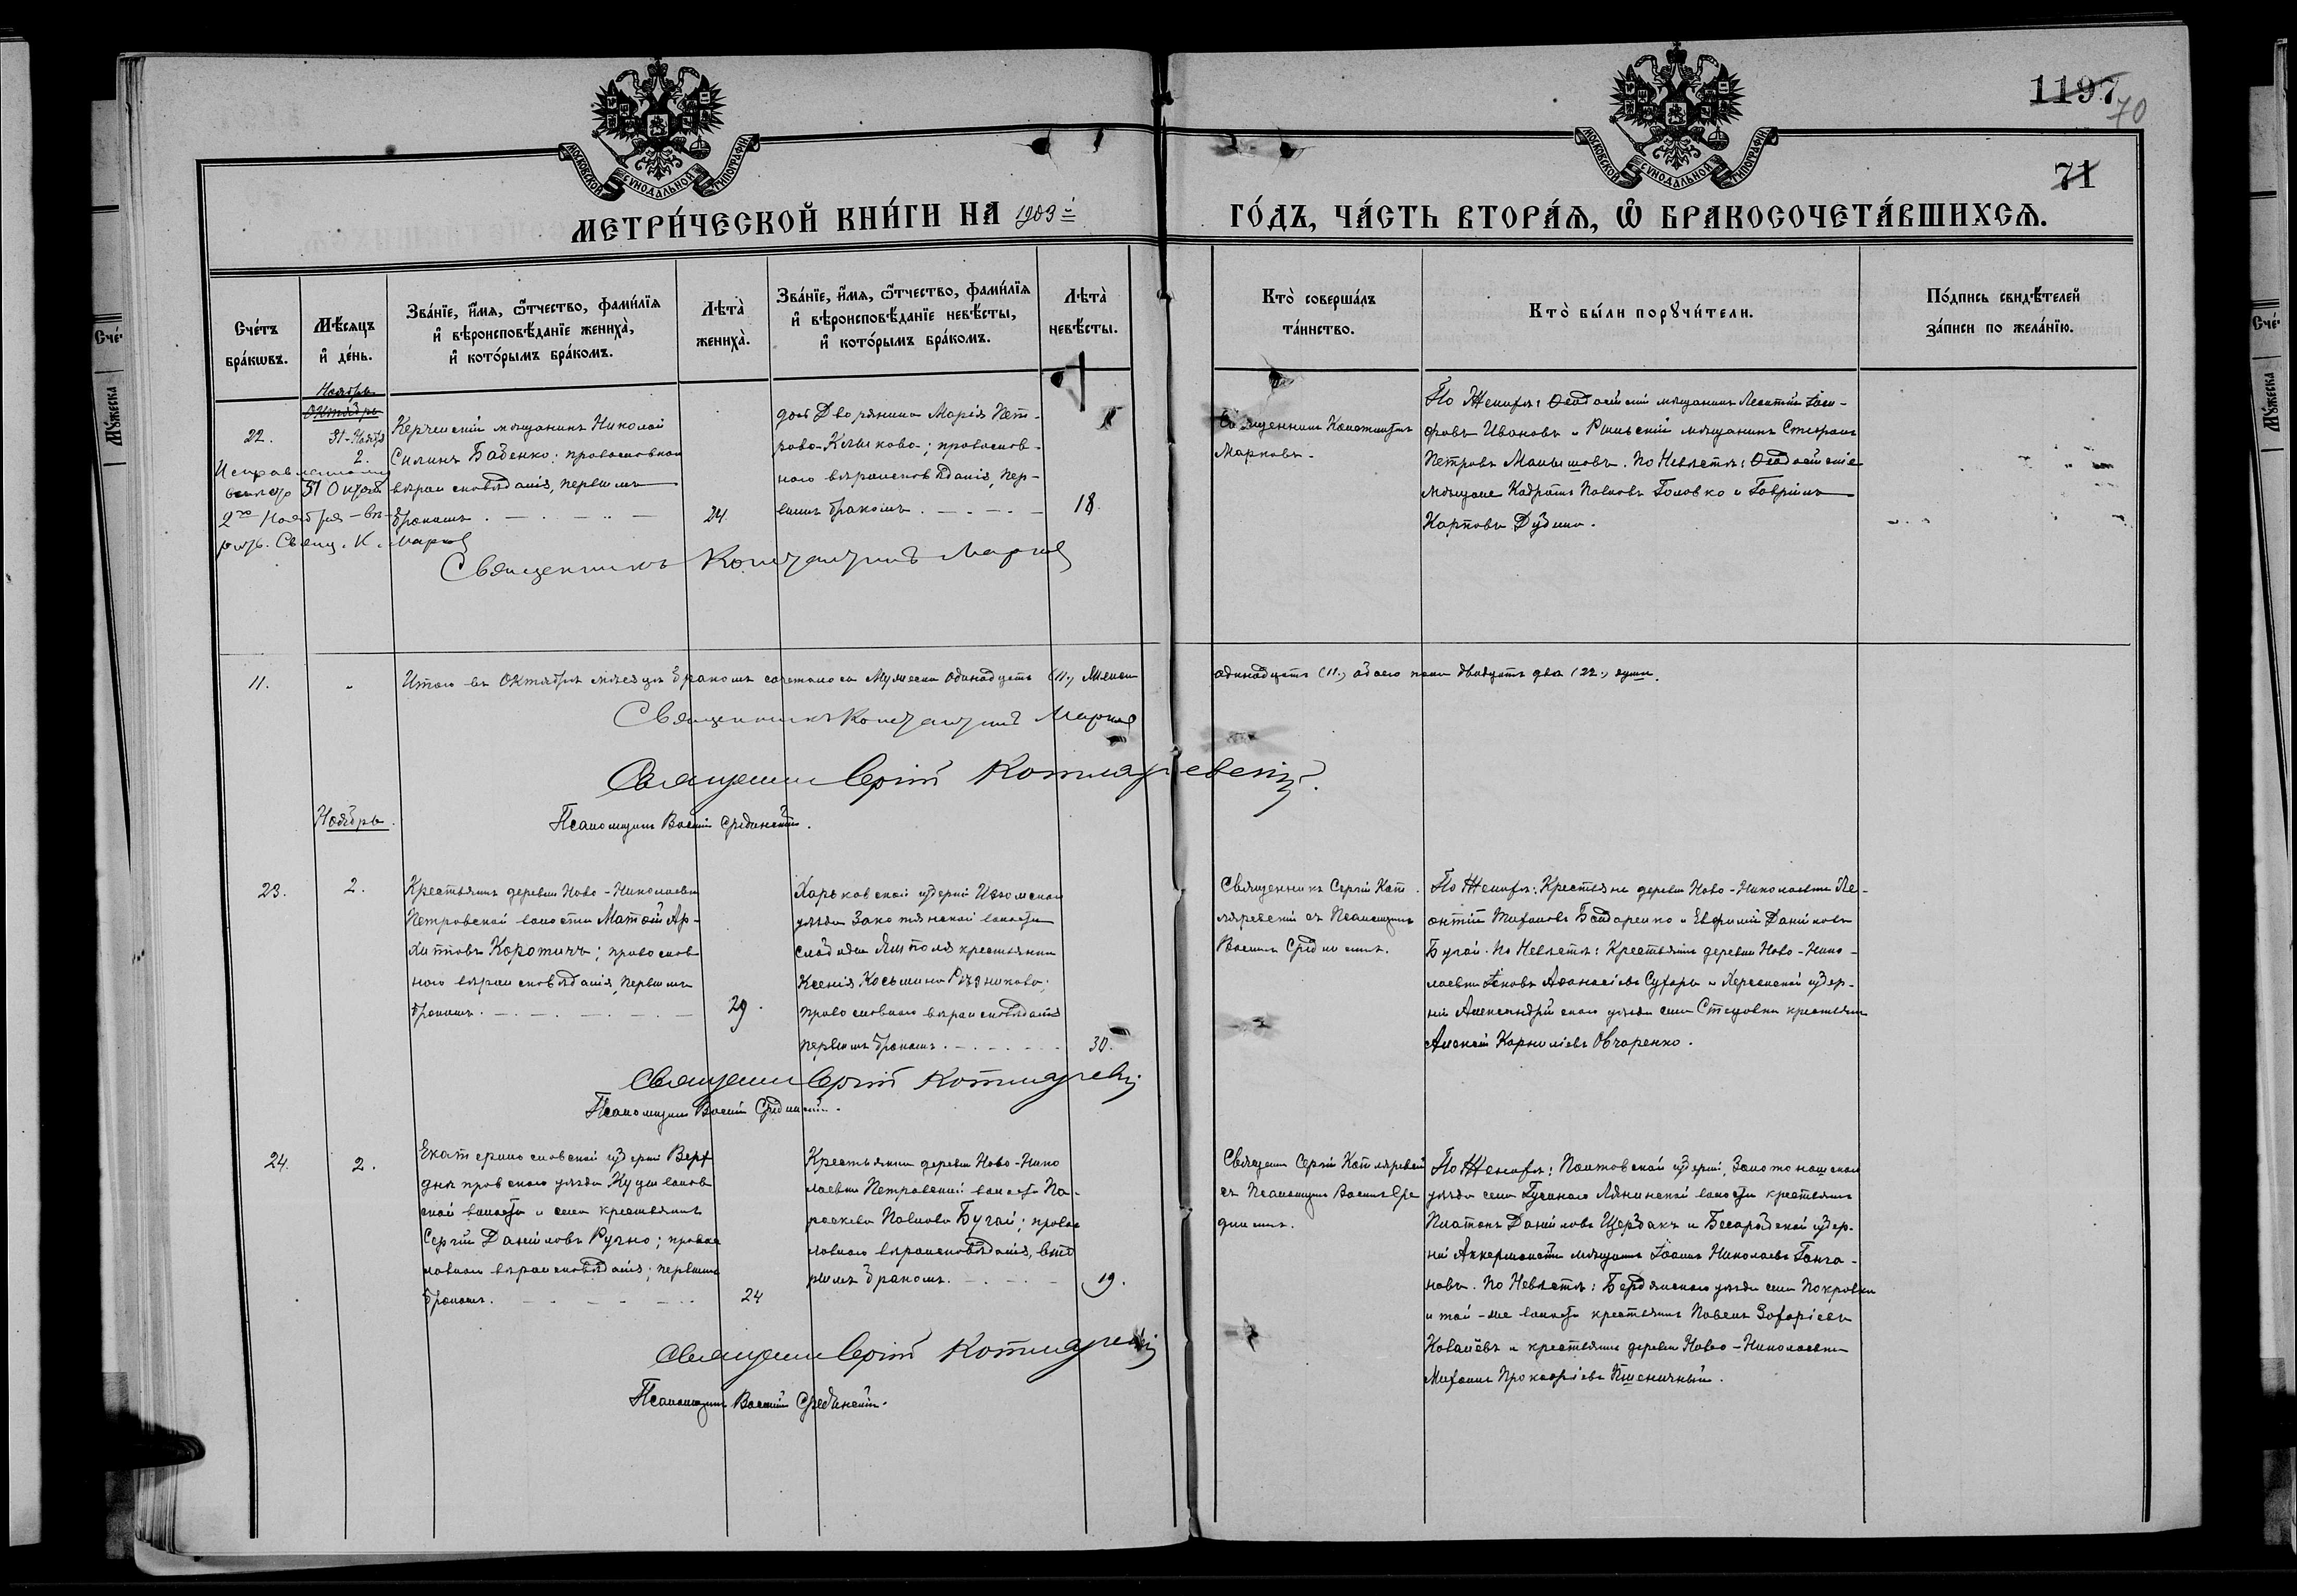 1197
70
71
МОСКОВСКОЙ СѴНОДАЛЬНОЙ ТИПОГРАФІИ
МОСКОВСКОЙ СѴНОДАЛЬНОЙ ТИПОГРАФІИ
МЕТРИ́ЧЕСКОЙ КНИ́ГИ НА 1903й ГО́ДЪ, ЧА́СТЬ ВТОРА́Ѧ, Ѡ҆ БРАКОСОЧЕТА́ВШИХСѦ.
Сче́тъ бра́кѡвъ.
Мѣ́сѧцъ и҆ де́нь.
Зва́нїе, и҆́мѧ, ѻ҆́тчество, фами́лїѧ и҆ вѣроисповѣ́данїе жениха̀, и҆ кото́рымъ бра́комъ.
Лѣта̀ жениха̀.
Зва́нїе, и҆́мѧ, ѻ҆́тчество, фами́лїѧ и҆ вѣроисповѣ́данїе невѣ́сты, и҆ кото́рымъ бра́комъ.
Лѣта̀ невѣ́сты.
Кто̀ соверша́лъ та́инство.
Кто̀ бы́ли порꙋчи́тели.
По́дпись свидѣ́телей за́писи по жела́нїю.
Ноябрь
Октябрь
22.
31-Ноября
2.
Исправленному
31 Октяб
2го Ноября - вѣ-
Свящ. К. Марков
Керченскій мѣщанинъ Николай
Силинъ Бабенко; православнаго
вѣроисповѣданія, первымъ
бракомъ.
24
дочь Дворянина Марія Пет-
рова-Клыкова; православ-
наго вѣроисповѣданія, пер-
вымъ бракомъ.
18.
Священникъ Константинъ
Марковъ.
По Женихѣ: Ѳеодосійскій мѣщанинъ Леонтій
Ивановъ и мѣщанинъ Стефанъ
Петровъ Малышовъ. По Невѣстѣ: Ѳеодосійскіе
мѣщане Кодратъ Павловъ Головко и Гавріилъ
Карповъ Дудина.
Священникъ Константинъ Марковъ
11.
Итого въ Октябрѣ мѣсяцѣ бракомъ сочеталось Мужеска одинадцать (11.) Женска одинадцать (11.) обоего пола двадцать два (22.) души.
Священникъ Константинъ Марковъ
Священникъ Сергій Котляревскій
Псаломщикъ Василій Срединскій.
Ноябрь.
23.
2.
Крестьянинъ деревни Ново-Николаевки
Петровской волости Матѳей Ар-
хиповъ Коротичъ; православ
наго вѣроисповѣданія, первымъ
бракомъ.
29.
Харьковской губерніи Изюмскаго
уѣзда волости
слободы Ямполя крестьянка
Ксенія Косьмина Рѣзникова;
православнаго вѣроисповѣданія
первымъ бракомъ.
30.
Священникъ Сергій Кот
ляревскій съ Псаломщикомъ
Василіемъ Срединскимъ.
По Женихѣ: Крестьяне деревни Ново-Николаевки Ле-
онтій Бондаренко и Евфимій Даніиловъ
Бугай. По Невѣстѣ: Крестьянинъ деревни Ново-Нико-
лаевки Іаковъ Аѳанасіевъ Сухарь и Херсонской губер-
ніи Александрійскаго уѣзда села Стецовки крестьянинъ
Алексій Корниліевъ Овчаренко.
Священникъ Сергій Котляревскій
Псаломщикъ Василій Срединскій.
24.
2.
Екатеринославской губерніи Верх
днѣпровскаго уѣзда
волости и села крестьянинъ
Сергій Даніиловъ Ручно; правос
лавнаго вѣроисповѣданія; первымъ
бракомъ.
24
Крестьянка деревни Ново-Нико
лаевки Петровской волости Па-
раскева Павлова Бугай; правос
лавнаго вѣроисповѣданія, вто
рымъ бракомъ.
19.
Священникъ Сергій Котляревскій
съ Псаломщикомъ Василіемъ Сре
динскимъ.
По Женихѣ: Полтавской губерніи, Золотоношскаго
уѣзда села волости крестьянинъ
Платонъ Даніиловъ Щербакъ и Бессарабской губер-
ніи Аккерманскій мѣщанинъ Іоаннъ Николаевъ Ганга-
новъ. По Невѣстѣ: Бердянскаго уѣзда села Покровки
и той-же волости крестьянинъ Павелъ Захаріевъ
Ковалёвъ и крестьянинъ деревни Ново-Николаевки
Михаилъ Прокофіевъ Пшеничный.
Священникъ Сергій Котляревскій
Псаломщикъ Василій Срединскій.
Сче́
Мꙋжеска
Сче́
Мꙋжеска